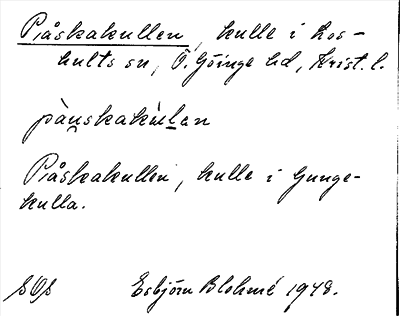 Påskakullen, kulle i Los-
hults sn, Ö. Göinge hd, Krist. l.
pàuskakùlan
Påskakullen, kulle i Gunge-
kulla.
Esbjörn Blohmé 1948.